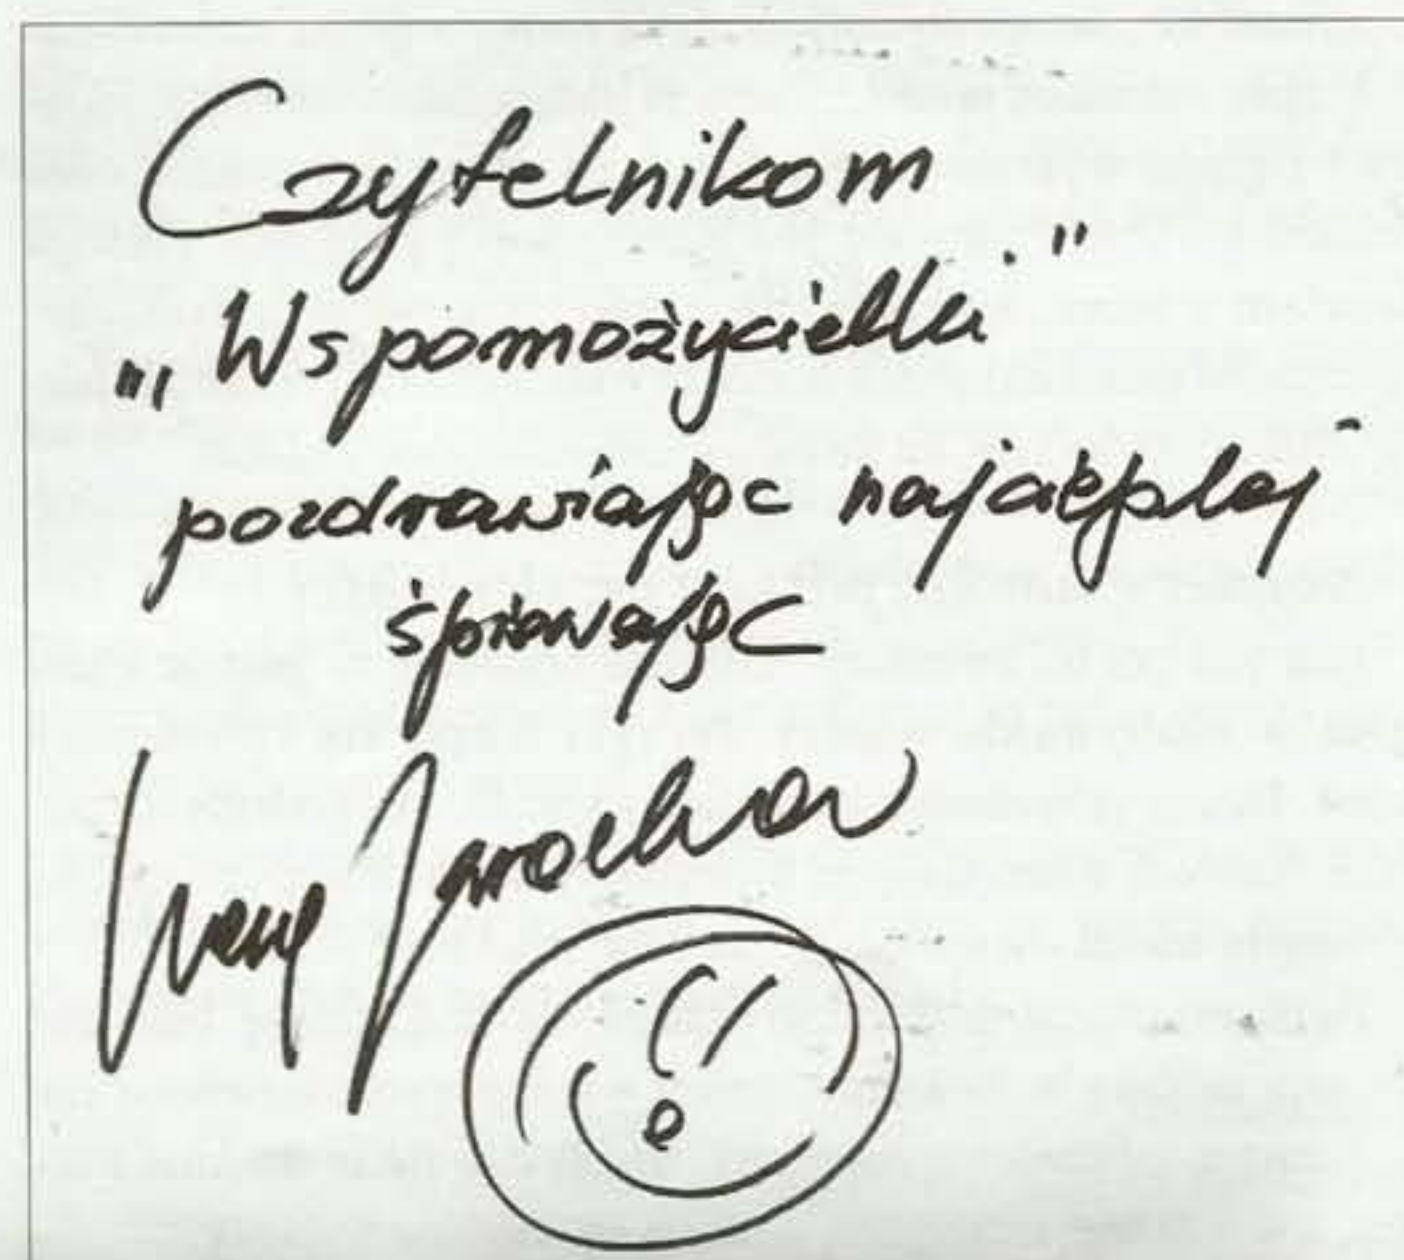 Czytelnikom
„Wspomożycielki"
pozdrawiając najcieplej
śpiewając
Irena Jarocka